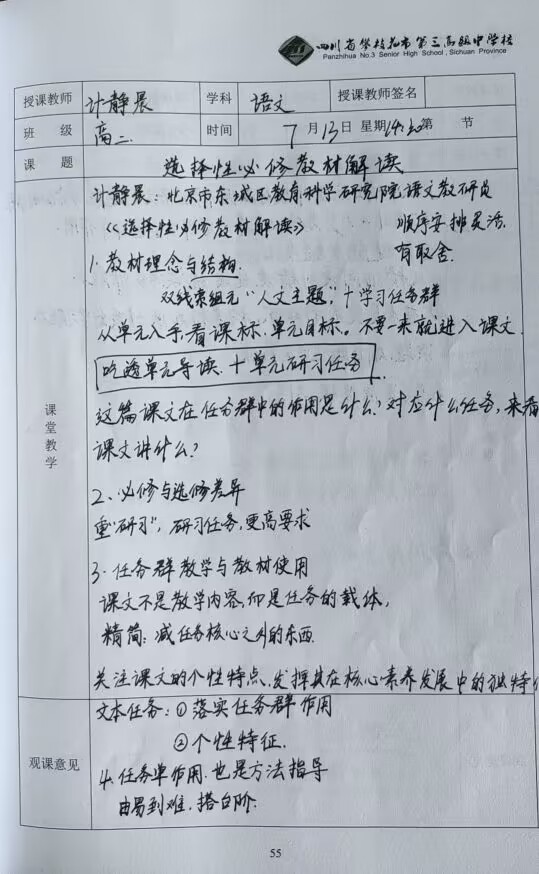 四川省攀枝花市第三高级中学校
Panzhihua No.3 Senior High School , Sichuan Province
授课教师 计静晨 学科 语文 授课教师签名
班 级 高二 时间 7月13日 星期 14:20 第 节
课 题 选择性必修教材解读
计静晨:北京市东城区教育科学研究院语文教研员
《选择性必修教材解读》 顺序安排灵活.
有取舍.
1.教材理念与结构.
双线索组元"人文主题";十学习任务群
从单元入手,看课标.单元目标。不要一来就进入课文.
吃透单元导读.十单元研习任务
这篇课文在任务群中的作用是什么?对应什么任务,来看
课文讲什么?
课堂教学
2、必修与选修差异
重"研习",研习任务,更高要求
3.任务群教学与教材使用
课文不是教学内容,而是任务的载体,
精简:减任务核心之外的东西.
关注课文的个性特点,发挥其在核心素养发展中的独特
文本任务:①落实任务群作用
②个性特征.
观课意见
4.任务单作用.也是方法指导
由易到难.搭台阶.
55